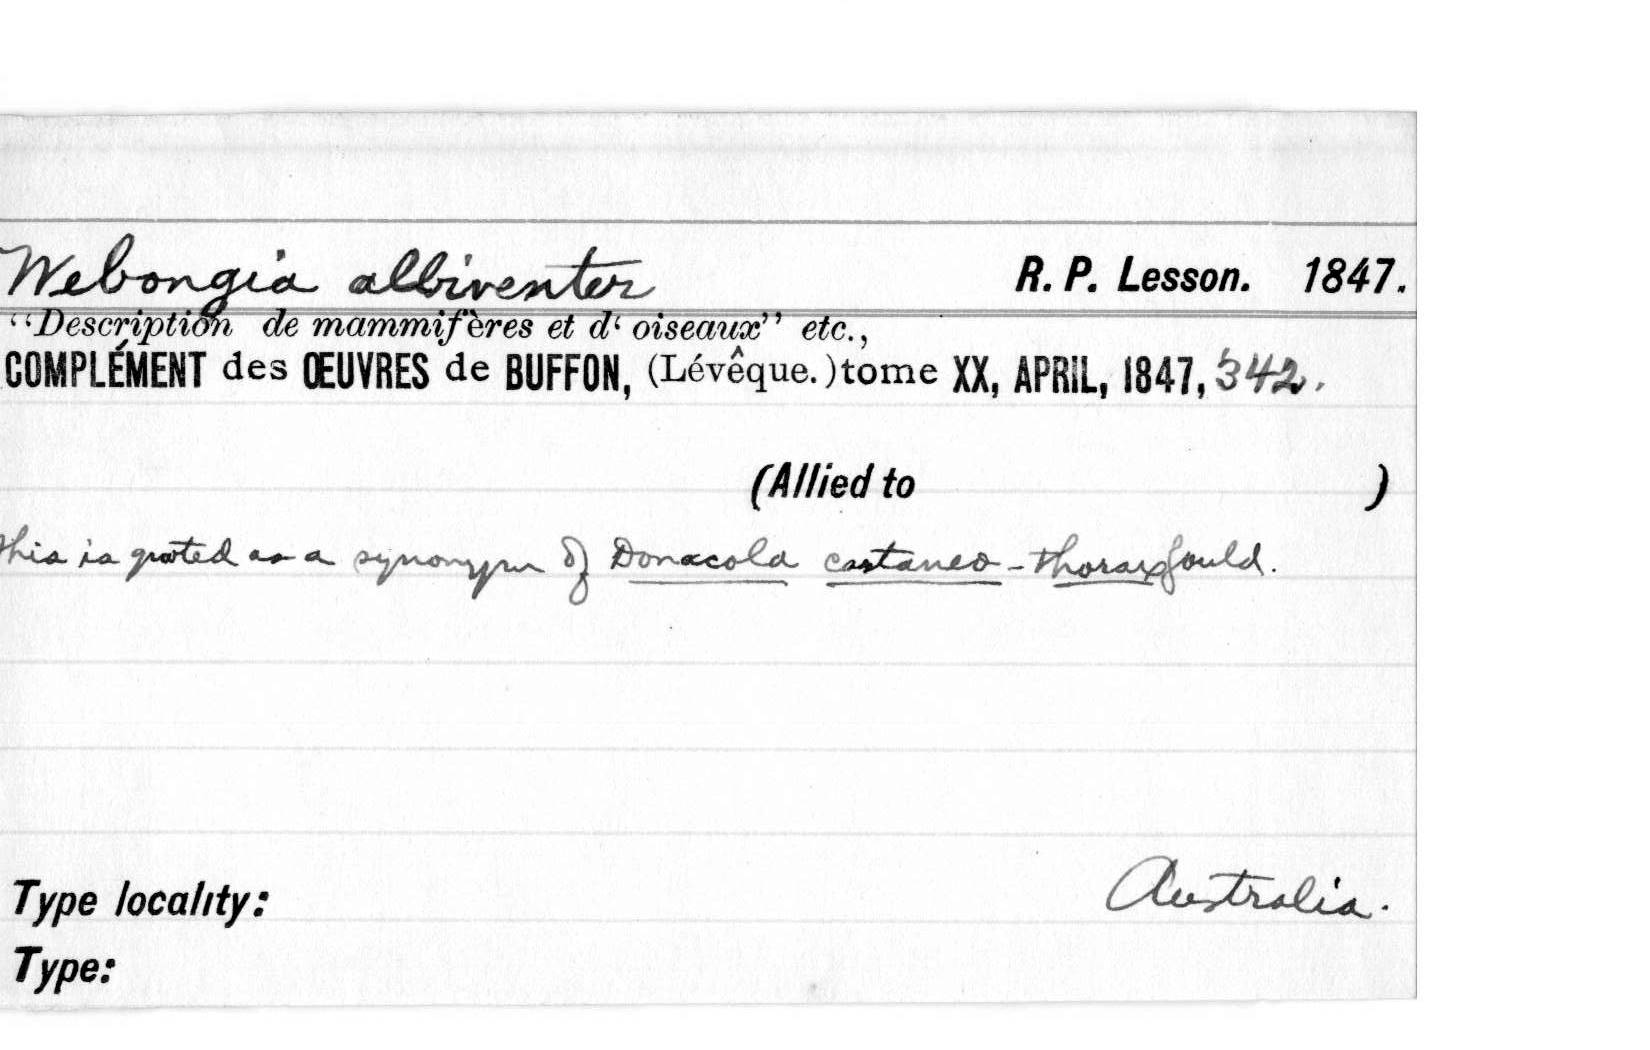 Webongia albiventer R. P. Lesson. 1847.
"Description de mammifères et d‘ oiseaux" etc.,
COMPLÉMENT des ŒUVRES de BUFFON, (Lévêque.)tome XX, APRIL, 1847, 342.
(Allied to )
This is quoted as a synonym of Donacola castaneo-thorax Gould.
Type locality: Australia.
Type: